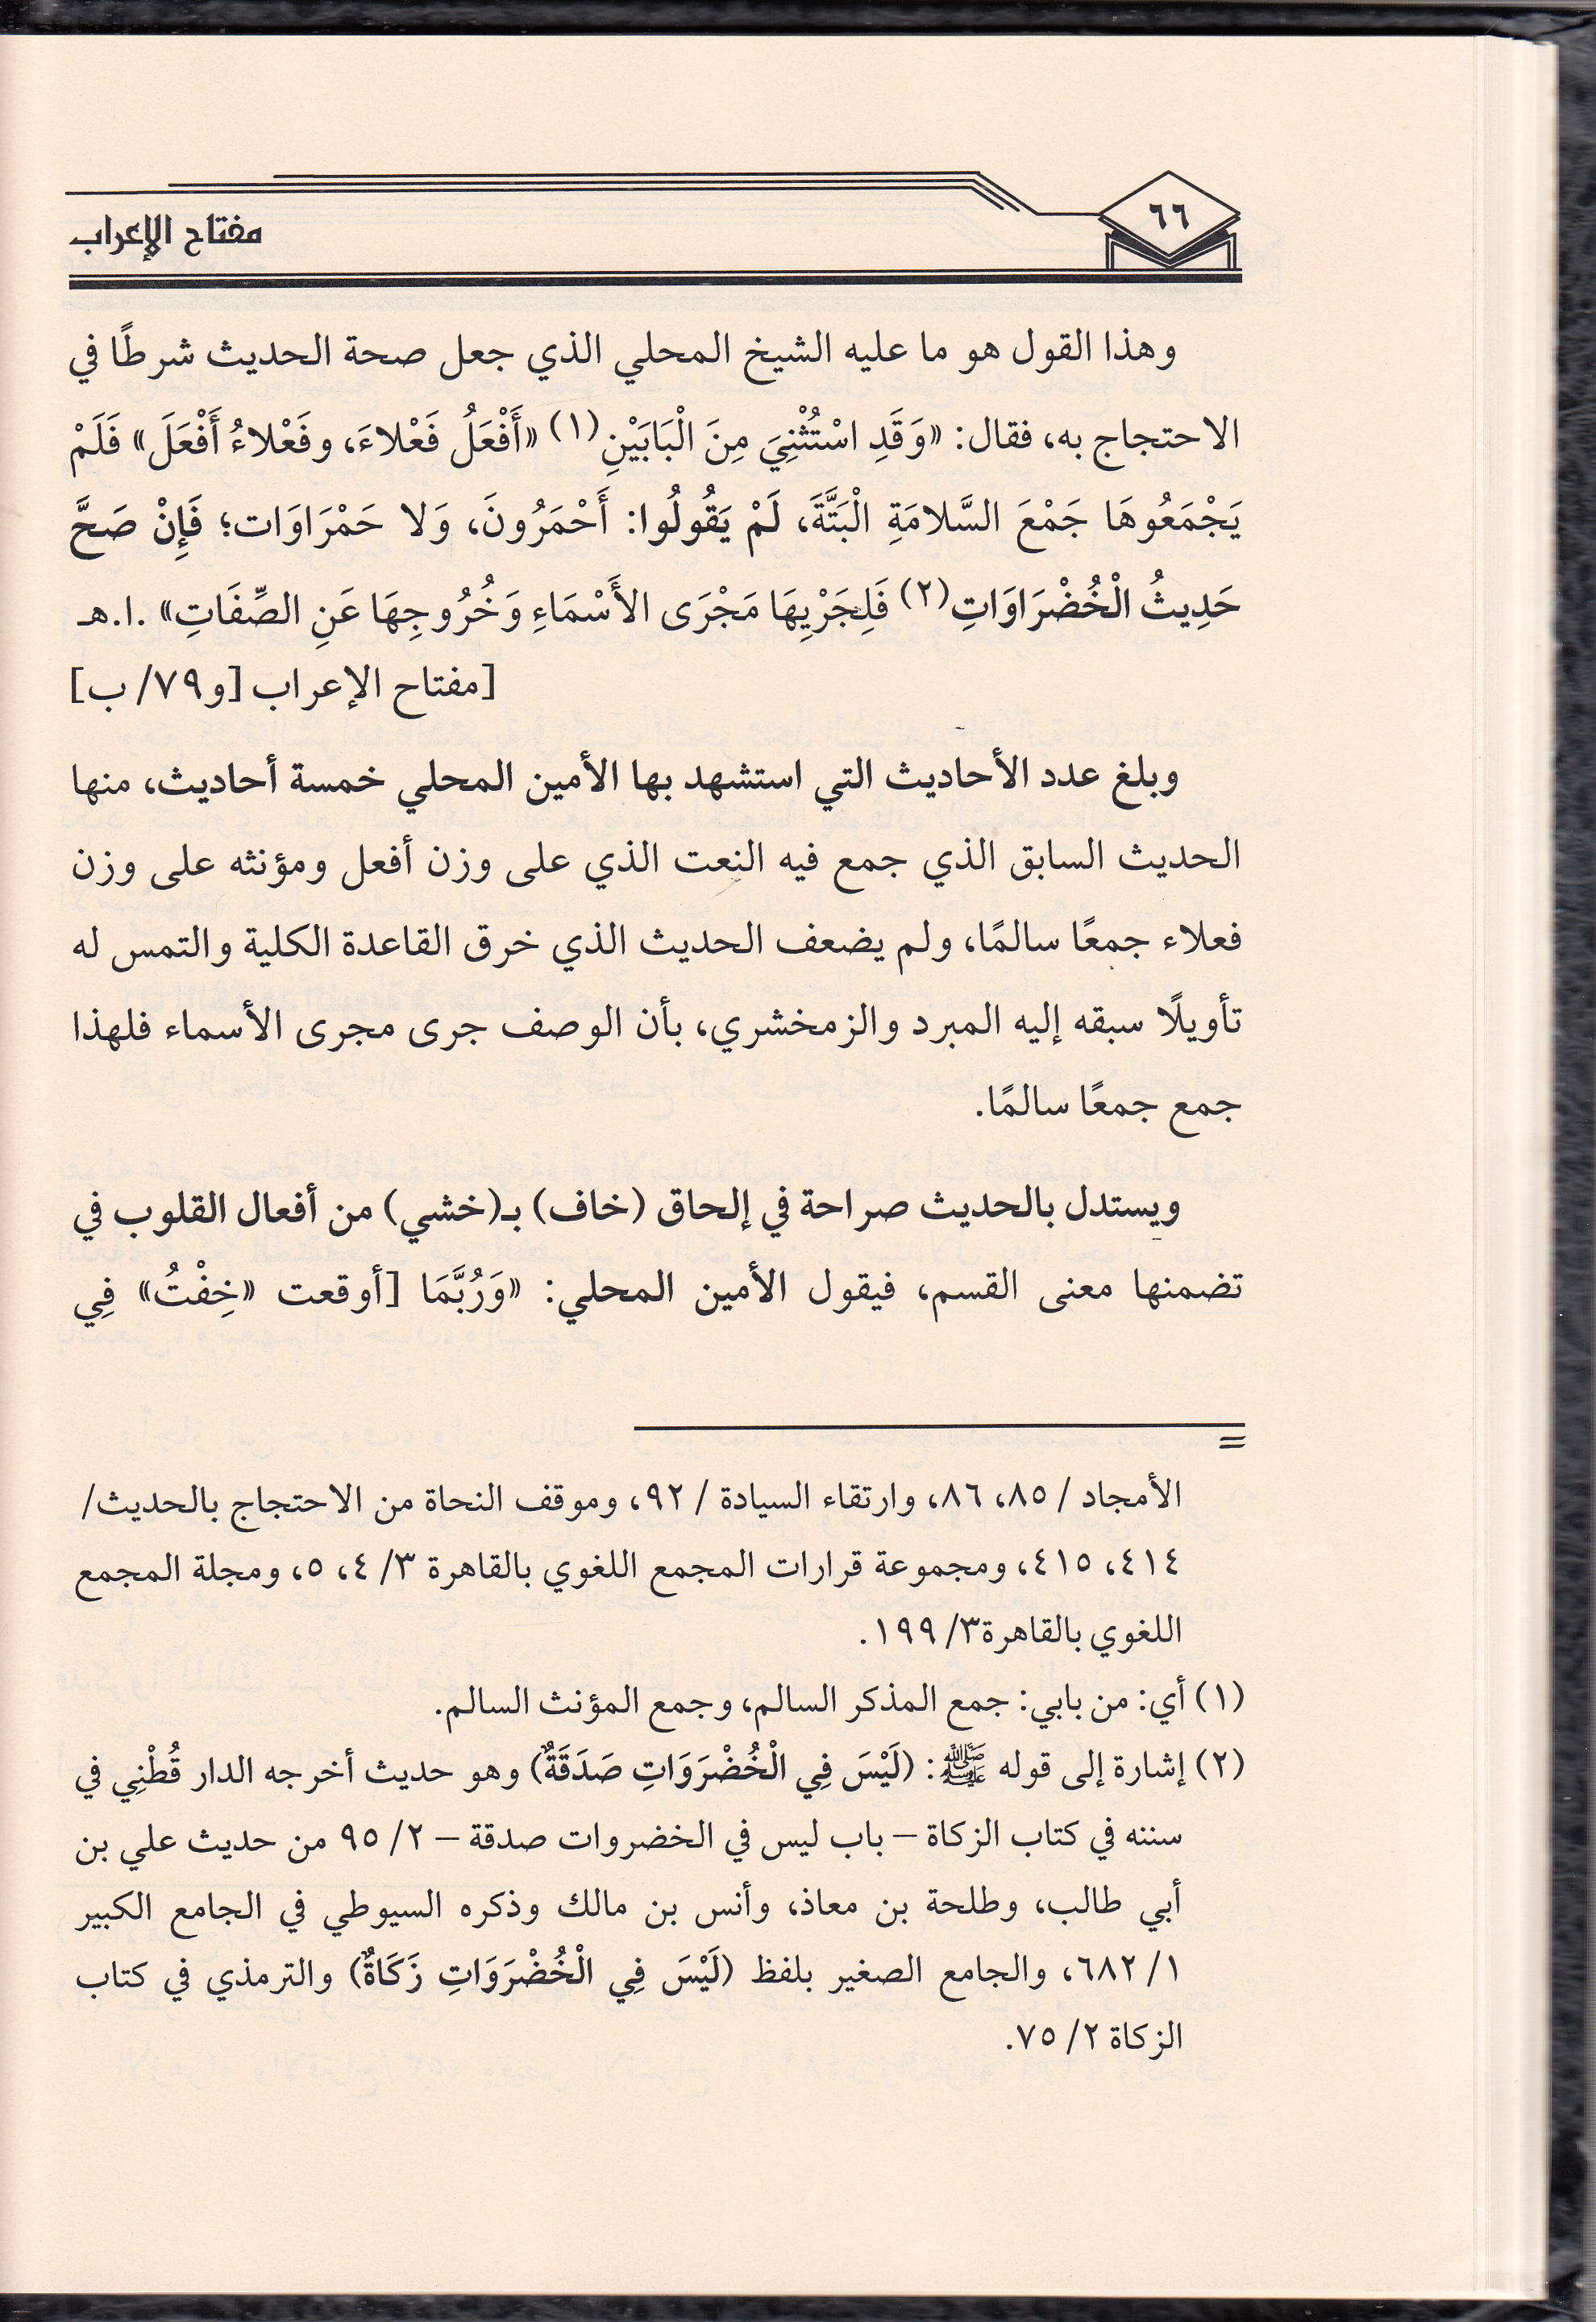 ٦٦
مفتاح الإعراب
وهذا القول هو ما عليه الشيخ المحلي الذي جعل صحة الحديث شرطًا في
الاحتجاج به، فقال: «وَقَدِ اسْتُثْنِيَ مِنَ الْبَابَيْنِ(١) «أَفْعَلُ فَعْلاءَ، وفَعْلاءُ أَفْعَلَ» فَلَمْ
يَجْمَعُوهَا جَمْعَ السَّلامَةِ الْبَتَّةَ، لَمْ يَقُولُوا: أَحْمَرُونَ، وَلا حَمْرَاوَات؛ فَإِنْ صَحَّ
حَدِيثُ الْخُضْرَاوَاتِ(٢) فَلِجَرْيِهَا مَجْرَى الأَسْمَاءِ وَخُرُوجِهَا عَنِ الصِّفَاتِ» .ا.هـ
[مفتاح الإعراب [و٧٩/ ب]
وبلغ عدد الأحاديث التي استشهد بها الأمين المحلي خمسة أحاديث، منها
الحديث السابق الذي جمع فيه النعت الذي على وزن أفعل ومؤنثه على وزن
فعلاء جمعًا سالمًا، ولم يضعف الحديث الذي خرق القاعدة الكلية والتمس له
تأويلًا سبقه إليه المبرد والزمخشري، بأن الوصف جرى مجرى الأسماء فلهذا
جمع جمعًا سالمًا.
ويستدل بالحديث صراحة في إلحاق (خاف) بـ(خشي) من أفعال القلوب في
تضمنها معنى القسم، فيقول الأمين المحلي: «وَرُبَّمَا [أوقعت «خِفْتُ» فِي
=
الأمجاد / ٨٥، ٨٦، وارتقاء السيادة / ٩٢، وموقف النحاة من الاحتجاج بالحديث/
٤١٤، ٤١٥، ومجموعة قرارات المجمع اللغوي بالقاهرة ٣/ ٤، ٥، ومجلة المجمع
اللغوي بالقاهرة٣/ ١٩٩.
(١) أي: من بابي: جمع المذكر السالم، وجمع المؤنث السالم.
(٢) إشارة إلى قوله ﷺ: (لَيْسَ فِي الْخُضْرَوَاتِ صَدَقَةٌ) وهو حديث أخرجه الدار قُطْنِي في
سننه في كتاب الزكاة – باب ليس في الخضروات صدقة – ٢/ ٩٥ من حديث علي بن
أبي طالب، وطلحة بن معاذ، وأنس بن مالك وذكره السيوطي في الجامع الكبير
١/ ٦٨٢، والجامع الصغير بلفظ (لَيْسَ فِي الْخُضْرَوَاتِ زَكَاةٌ) والترمذي في كتاب
الزكاة ٢/ ٧٥.